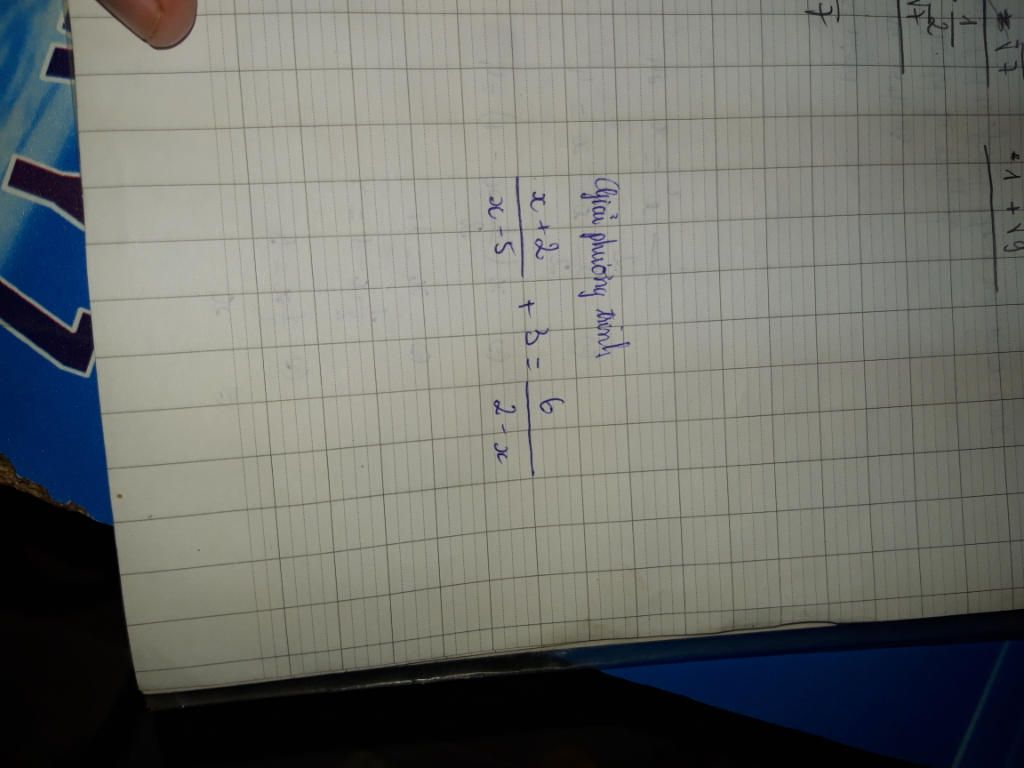 Giải phương trình
x + 2 / x - 5 + 3 = 6 / 2 - x